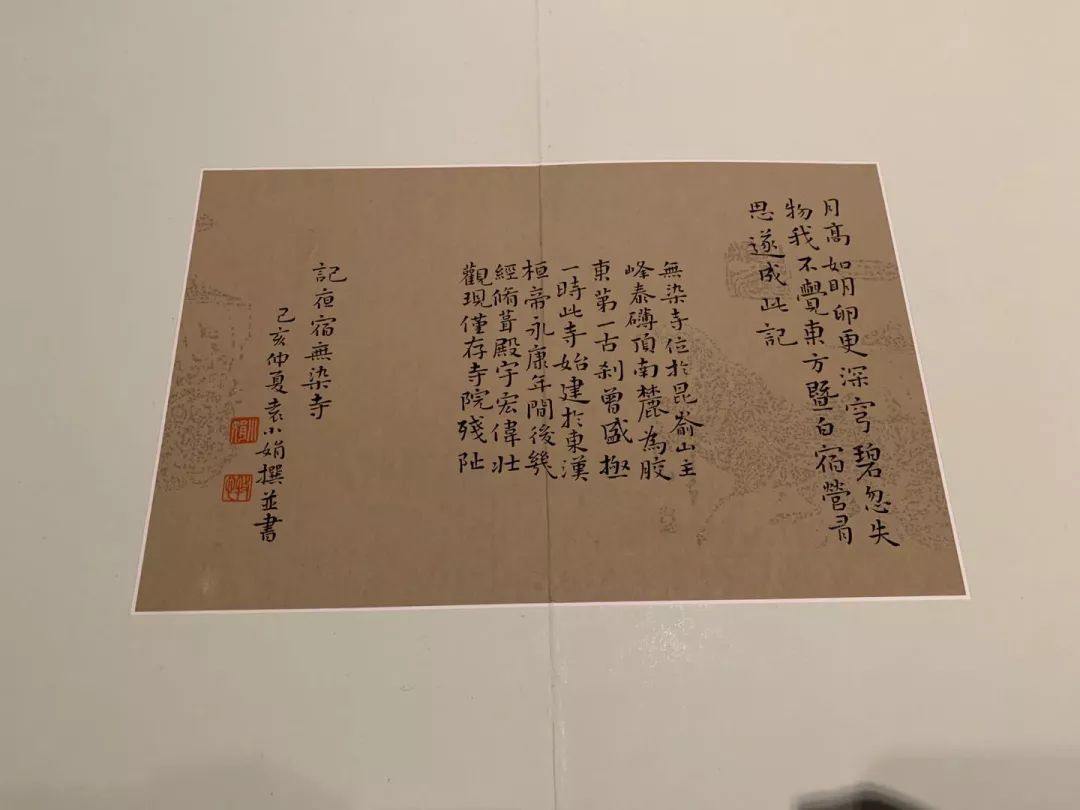 月高如明卵更深穹碧忽失
物我不覺東方暨白宿營有
思遂成此記
無染寺位於昆嵛山主
峰泰礴頂南麓為胶
東第一古刹曾盛極
一時此寺始建於東漢
桓帝永康年間後幾
經脩葺殿宇宏偉壯
觀現僅存寺院殘阯
記夜宿無染寺
己亥仲夏袁小娟撰並書